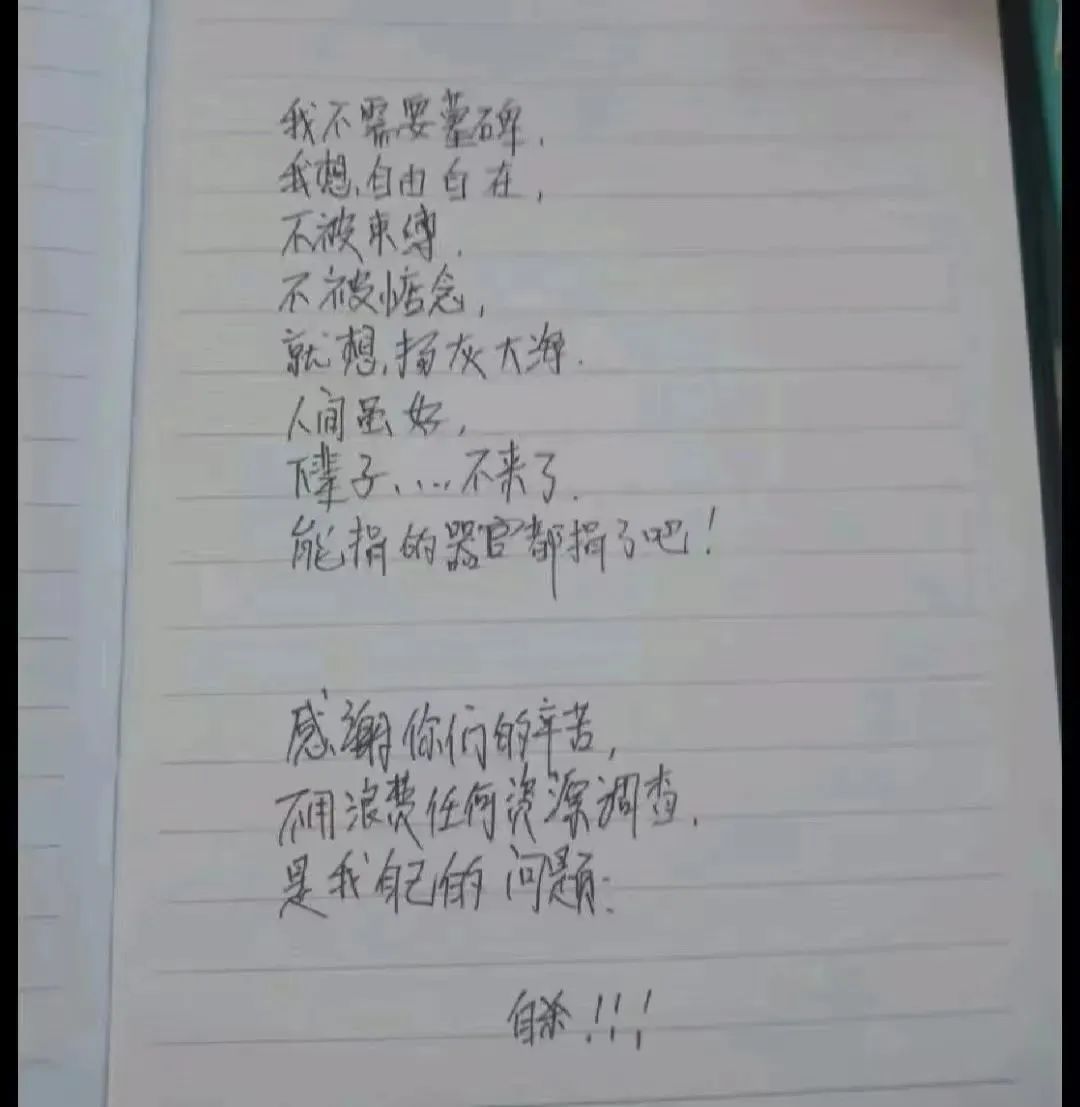 我不需要墓碑.
我想,自由自在,
不被束缚.
不被惦念,
就想,扬灰大海.
人间虽好,
下辈子、...不来了.
能捐的器官都捐了吧!
感谢你们的辛苦,
不用浪费任何资源调查.
是我自己的问题:
自杀.!!!